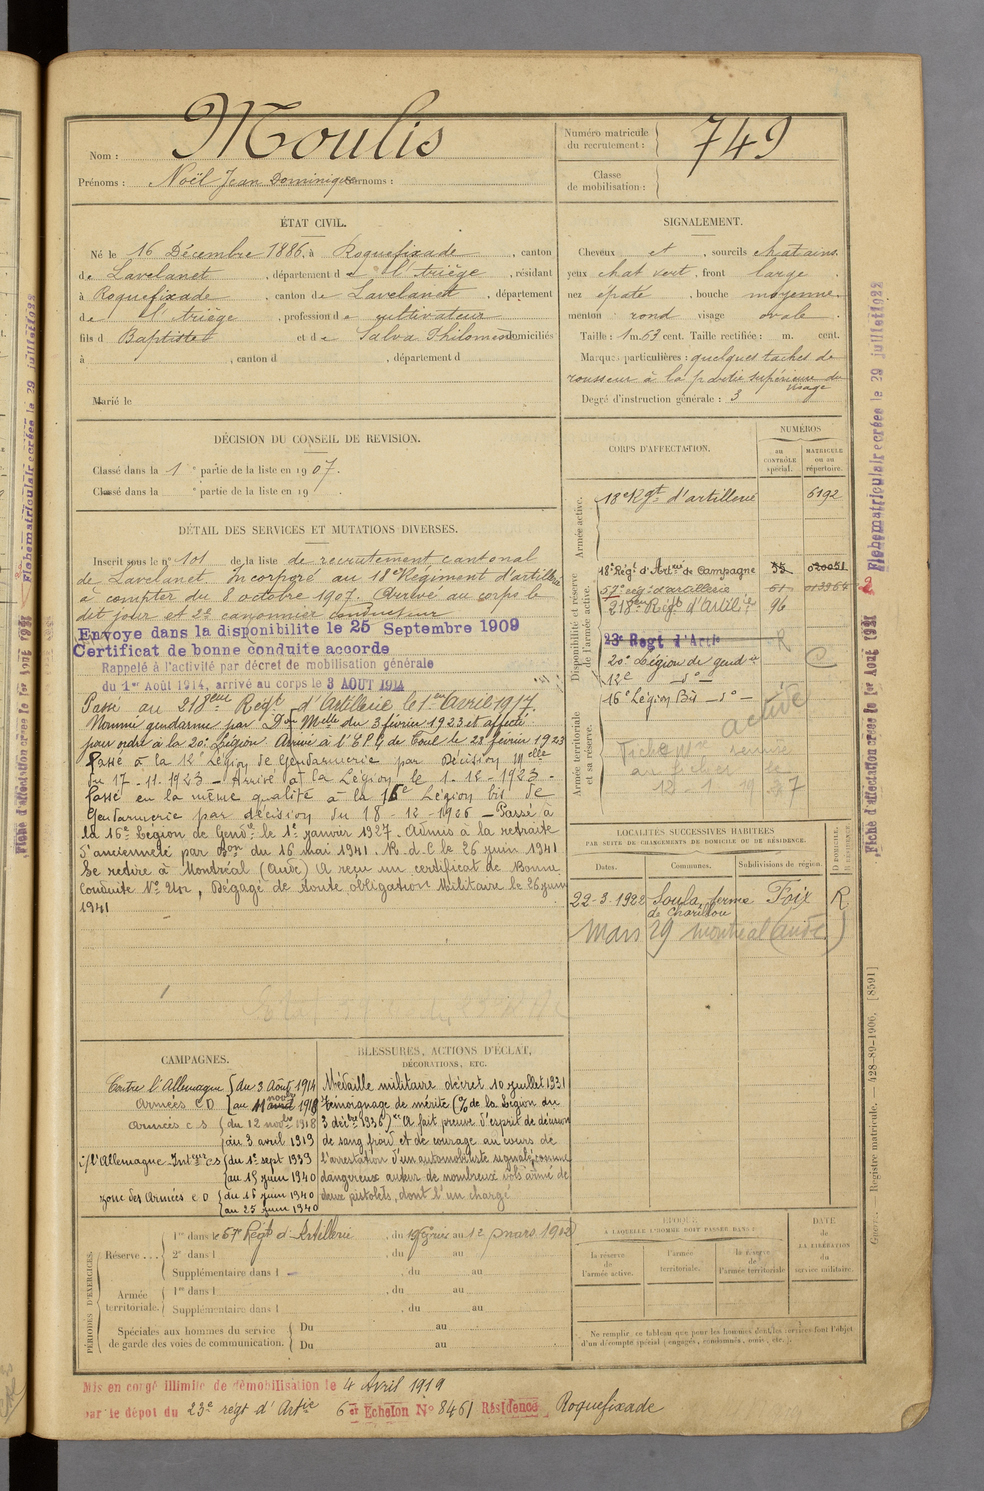 Nom : Moulis
Prénoms : Noël Jean Dominique Surnoms :
Numéro matricule du recrutement : 749
Classe de mobilisation :
ÉTAT CIVIL.
Né le 16 Décembre 1886, à Roquefixade , canton
de Lavelanet , département de l'Ariège , résidant
à Roquefixade , canton de Lavelanet , département
de l'Ariège , profession de cultivateur
fils d Baptiste et de Salva Philomène domiciliés
à , canton d , département d
Marié le
SIGNALEMENT.
Cheveux et , sourcils chatains.
yeux chat vert , front large .
nez épaté , bouche moyenne.
menton rond visage ovale .
Taille : 1 m. 63 cent. Taille rectifiée : m. cent.
Marques particulières : quelques taches de
rousseur à la partie supérieure du
visage
Degré d'instruction générale : 3
DÉCISION DU CONSEIL DE REVISION.
Classé dans la 1e partie de la liste en 1907.
Classé dans la e partie de la liste en 19 .
DÉTAIL DES SERVICES ET MUTATIONS DIVERSES.
Inscrit sous le n° 101 de la liste de recrutement cantonal
de Lavelanet. Incorporé au 18e Régiment d'artillerie
à compter du 8 octobre 1907. Arrivé au corps le
dit jour et 2e canonnier conducteur
Envoyé dans la disponibilité le 25 Septembre 1909
Certificat de bonne conduite accordé
Rappelé à l'activité par décret de mobilisation générale
du 1er Août 1914, arrivé au corps le 3 AOUT 1914
Passé au 218eme Regt d'Artillerie le 1er Avril 1917.
Nommé gendarme par Don Melle du 3 février 1923 et affecté
pour ordre à la 20e Légion. Arrivé à l'E.P.G de Toul le 23 février 1923
Passé à la 12e Légion de Gendarmerie par Décision Melle
du 17-11-1923 - Arrivé à la Légion le 1-12-1923 -
Passé en la même qualité à la 16e Légion bis de
Gendarmerie par décision du 18-12-1926 - Passé à
la 16e Légion de Gendie le 1er janvier 1927. Admis à la retraite
d'ancienneté par Don du 16 mai 1941. R.d.C le 26 juin 1941
Se retire à Montréal (Aude) A reçu un certificat de Bonne
Conduite N° , Dégagé de toute obligation Militaire le 26 juin
1941
CORPS D'AFFECTATION.
NUMÉROS
au CONTRÔLE spécial.
MATRICULE ou au répertoire.
Armée active.
18e Rgt d'artillerie 6192
Disponibilité et réserve de l'armée active.
18e Régt d'Artrie de Campagne 35 020051
57e rég d'artillerie 61 013364
218e Régt d'Artillie 96
23e Regt d'Artie R
20e Légion de gendie
12e - do -
16e Légion Bis - do -
active
Armée territoriale et sa réserve.
Fiche Me remise
au fichier le
12-1 19 37
LOCALITÉS SUCCESSIVES HABITÉES
PAR SUITE DE CHANGEMENTS DE DOMICILE OU DE RÉSIDENCE.
D DOMICILE. R RÉSIDENCE.
Dates. Communes. Subdivisions de région.
22-3-1922 Soula, ferme Foix R
de Charillou
Mars 29 montréal (Aude)
CAMPAGNES.
Contre l'Allemagne du 3 Août 1914
Armées C D au 11 novbre 1918
Armées C S du 12 novbre 1918
au 3 avril 1919
c/ l'Allemagne Intre C S du 1er sept 1939
au 15 juin 1940
zone des Armées C D du 16 juin 1940
au 25 juin 1940
BLESSURES, ACTIONS D'ÉCLAT,
DÉCORATIONS, ETC.
Médaille militaire décret 10 juillet 1931
Témoignage de mérite (O/ de la Légion du
3 décbre 1936) "A fait preuve d'esprit de décision
de sang froid et de courage au cours de
l'arrestation d'un automobiliste signalé comme
dangereux auteur de nombreux vols armé de
deux pistolets, dont l'un chargé
PÉRIODES D'EXERCICES.
Réserve ...
1re dans le 57e Régt d'Artillerie , du 19 février au 12 mars 1912
2e dans l , du au
Supplémentaire dans l , du au
Armée territoriale.
1re dans l , du au
Supplémentaire dans l , du au
Spéciales aux hommes du service Du au
de garde des voies de communication. Du au
ÉPOQUE
À LAQUELLE L'HOMME DOIT PASSER DANS :
la réserve de l'armée active.
l'armée territoriale.
la réserve de l'armée territoriale
DATE DE LA LIBÉRATION du service militaire.
Ne remplir ce tableau que pour les hommes dont les services font l'objet
d'un décompte spécial (engagés, condamnés, omis, etc.).
Mis en congé illimité de démobilisation le 4 Avril 1919
par le dépot du 23e regt d'Artie 6e Echelon N° 8461 Résidence Roquefixade
Fiche matriculaire créée le 29 juillet 1922
Fiche d'affectation créée le 1er Août 1921
— Registre matricule. — 428-89-1906. [8591]